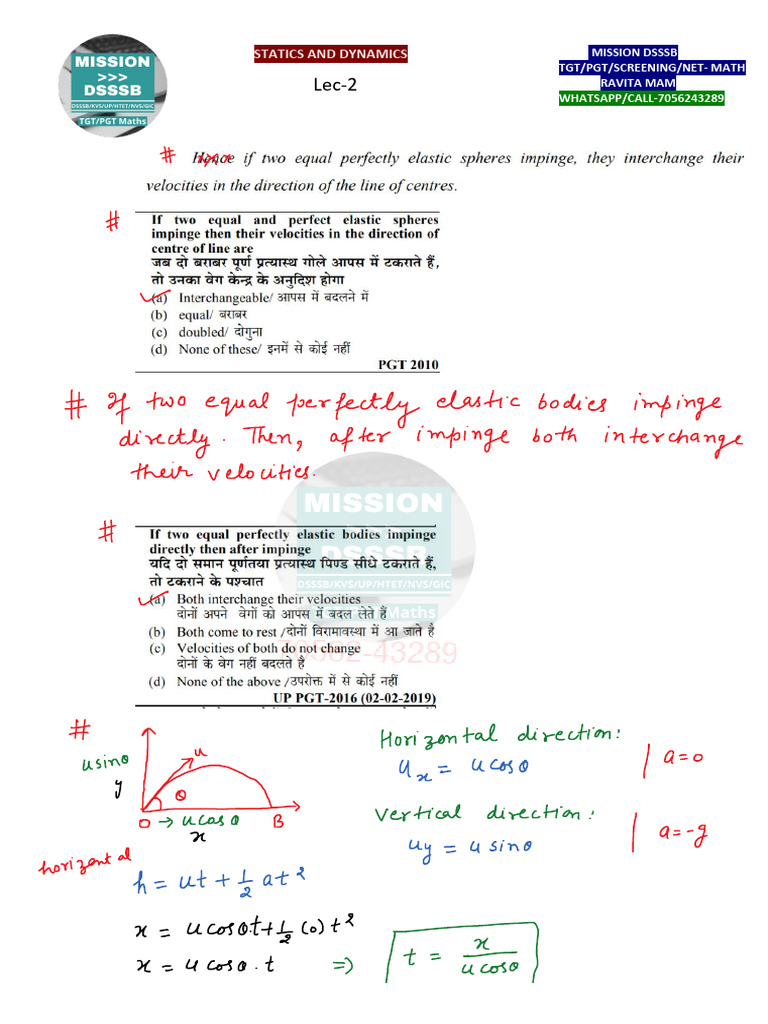 MISSION
>>>
DSSSB
DSSSB/KVS/UP/HTET/NVS/GIC
TGT/PGT Maths
STATICS AND DYNAMICS
Lec-2
MISSION DSSSB
TGT/PGT/SCREENING/NET- MATH
RAVITA MAM
WHATSAPP/CALL-7056243289
# Hence if two equal perfectly elastic spheres impinge, they interchange their
velocities in the direction of the line of centres.
# If two equal and perfect elastic spheres
impinge then their velocities in the direction of
centre of line are
जब दो बराबर पूर्ण प्रत्यास्थ गोले आपस में टकराते हैं,
तो उनका वेग केन्द्र के अनुदिश होगा
(a) Interchangeable/ आपस में बदलने में
(b) equal/ बराबर
(c) doubled/ दोगुना
(d) None of these/ इनमें से कोई नहीं
PGT 2010
# If two equal perfectly elastic bodies impinge
directly. Then, after impinge both interchange
their velocities.
MISSION
>>>
DSSSB
DSSSB/KVS/UP/HTET/NVS/GIC
Maths
70562-43289
# If two equal perfectly elastic bodies impinge
directly then after impinge
यदि दो समान पूर्णतया प्रत्यास्थ पिण्ड सीधे टकराते हैं,
तो टकराने के पश्चात
(a) Both interchange their velocities
दोनों अपने वेगों को आपस में बदल लेते हैं
(b) Both come to rest /दोनों विरामावस्था में आ जाते है
(c) Velocities of both do not change
दोनों के वेग नहीं बदलते है
(d) None of the above /उपरोक्त में से कोई नहीं
UP PGT-2016 (02-02-2019)
#
u sinθ
y
u
θ
O → u cosθ B
x
Horizontal direction:
u_x = u cosθ | a=0
Vertical direction:
u_y = u sinθ | a=-g
horizontal
h = ut + 1/2 at²
x = u cosθ.t + 1/2 (0) t²
x = u cosθ . t ⇒ t = x / u cosθ